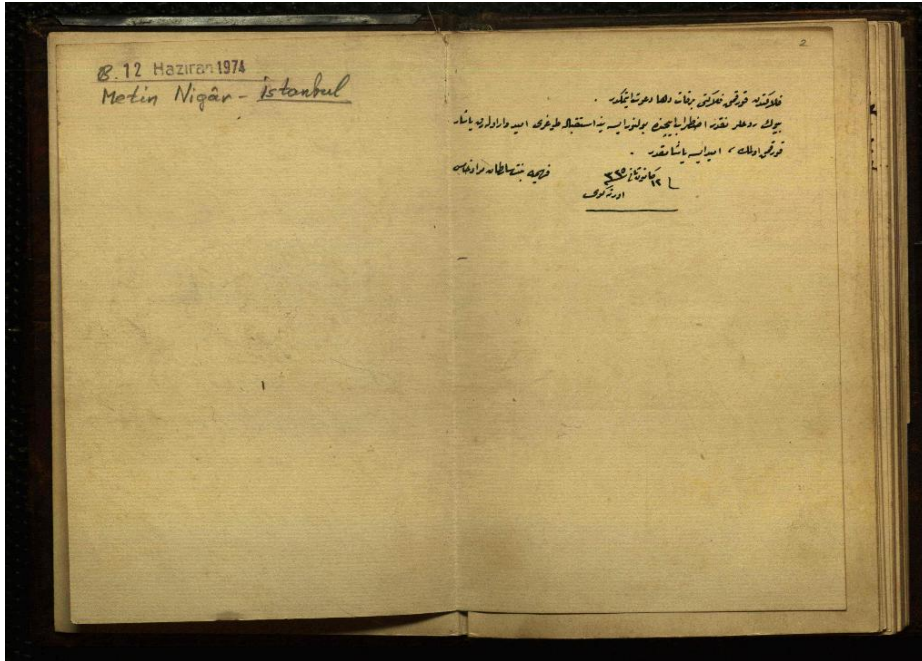 B. 12 Haziran 1974
Metin Nigâr - İstanbul
2
فلاكتدن قورقمق فلاكتى برقات دها دعوت ايتمكدر .
بيوك روحلر نقدر اضطراب ايچنده بولنورلرسه ينه استقباله طوغرى اميدوار اوله رق ياشار
قورقمق اولمك ، اميد ايسه ياشامقدر .
فهيمه بنت سلطان مراد خامس
١٢ كانون ثانى ٣٣٥
اورته كوى